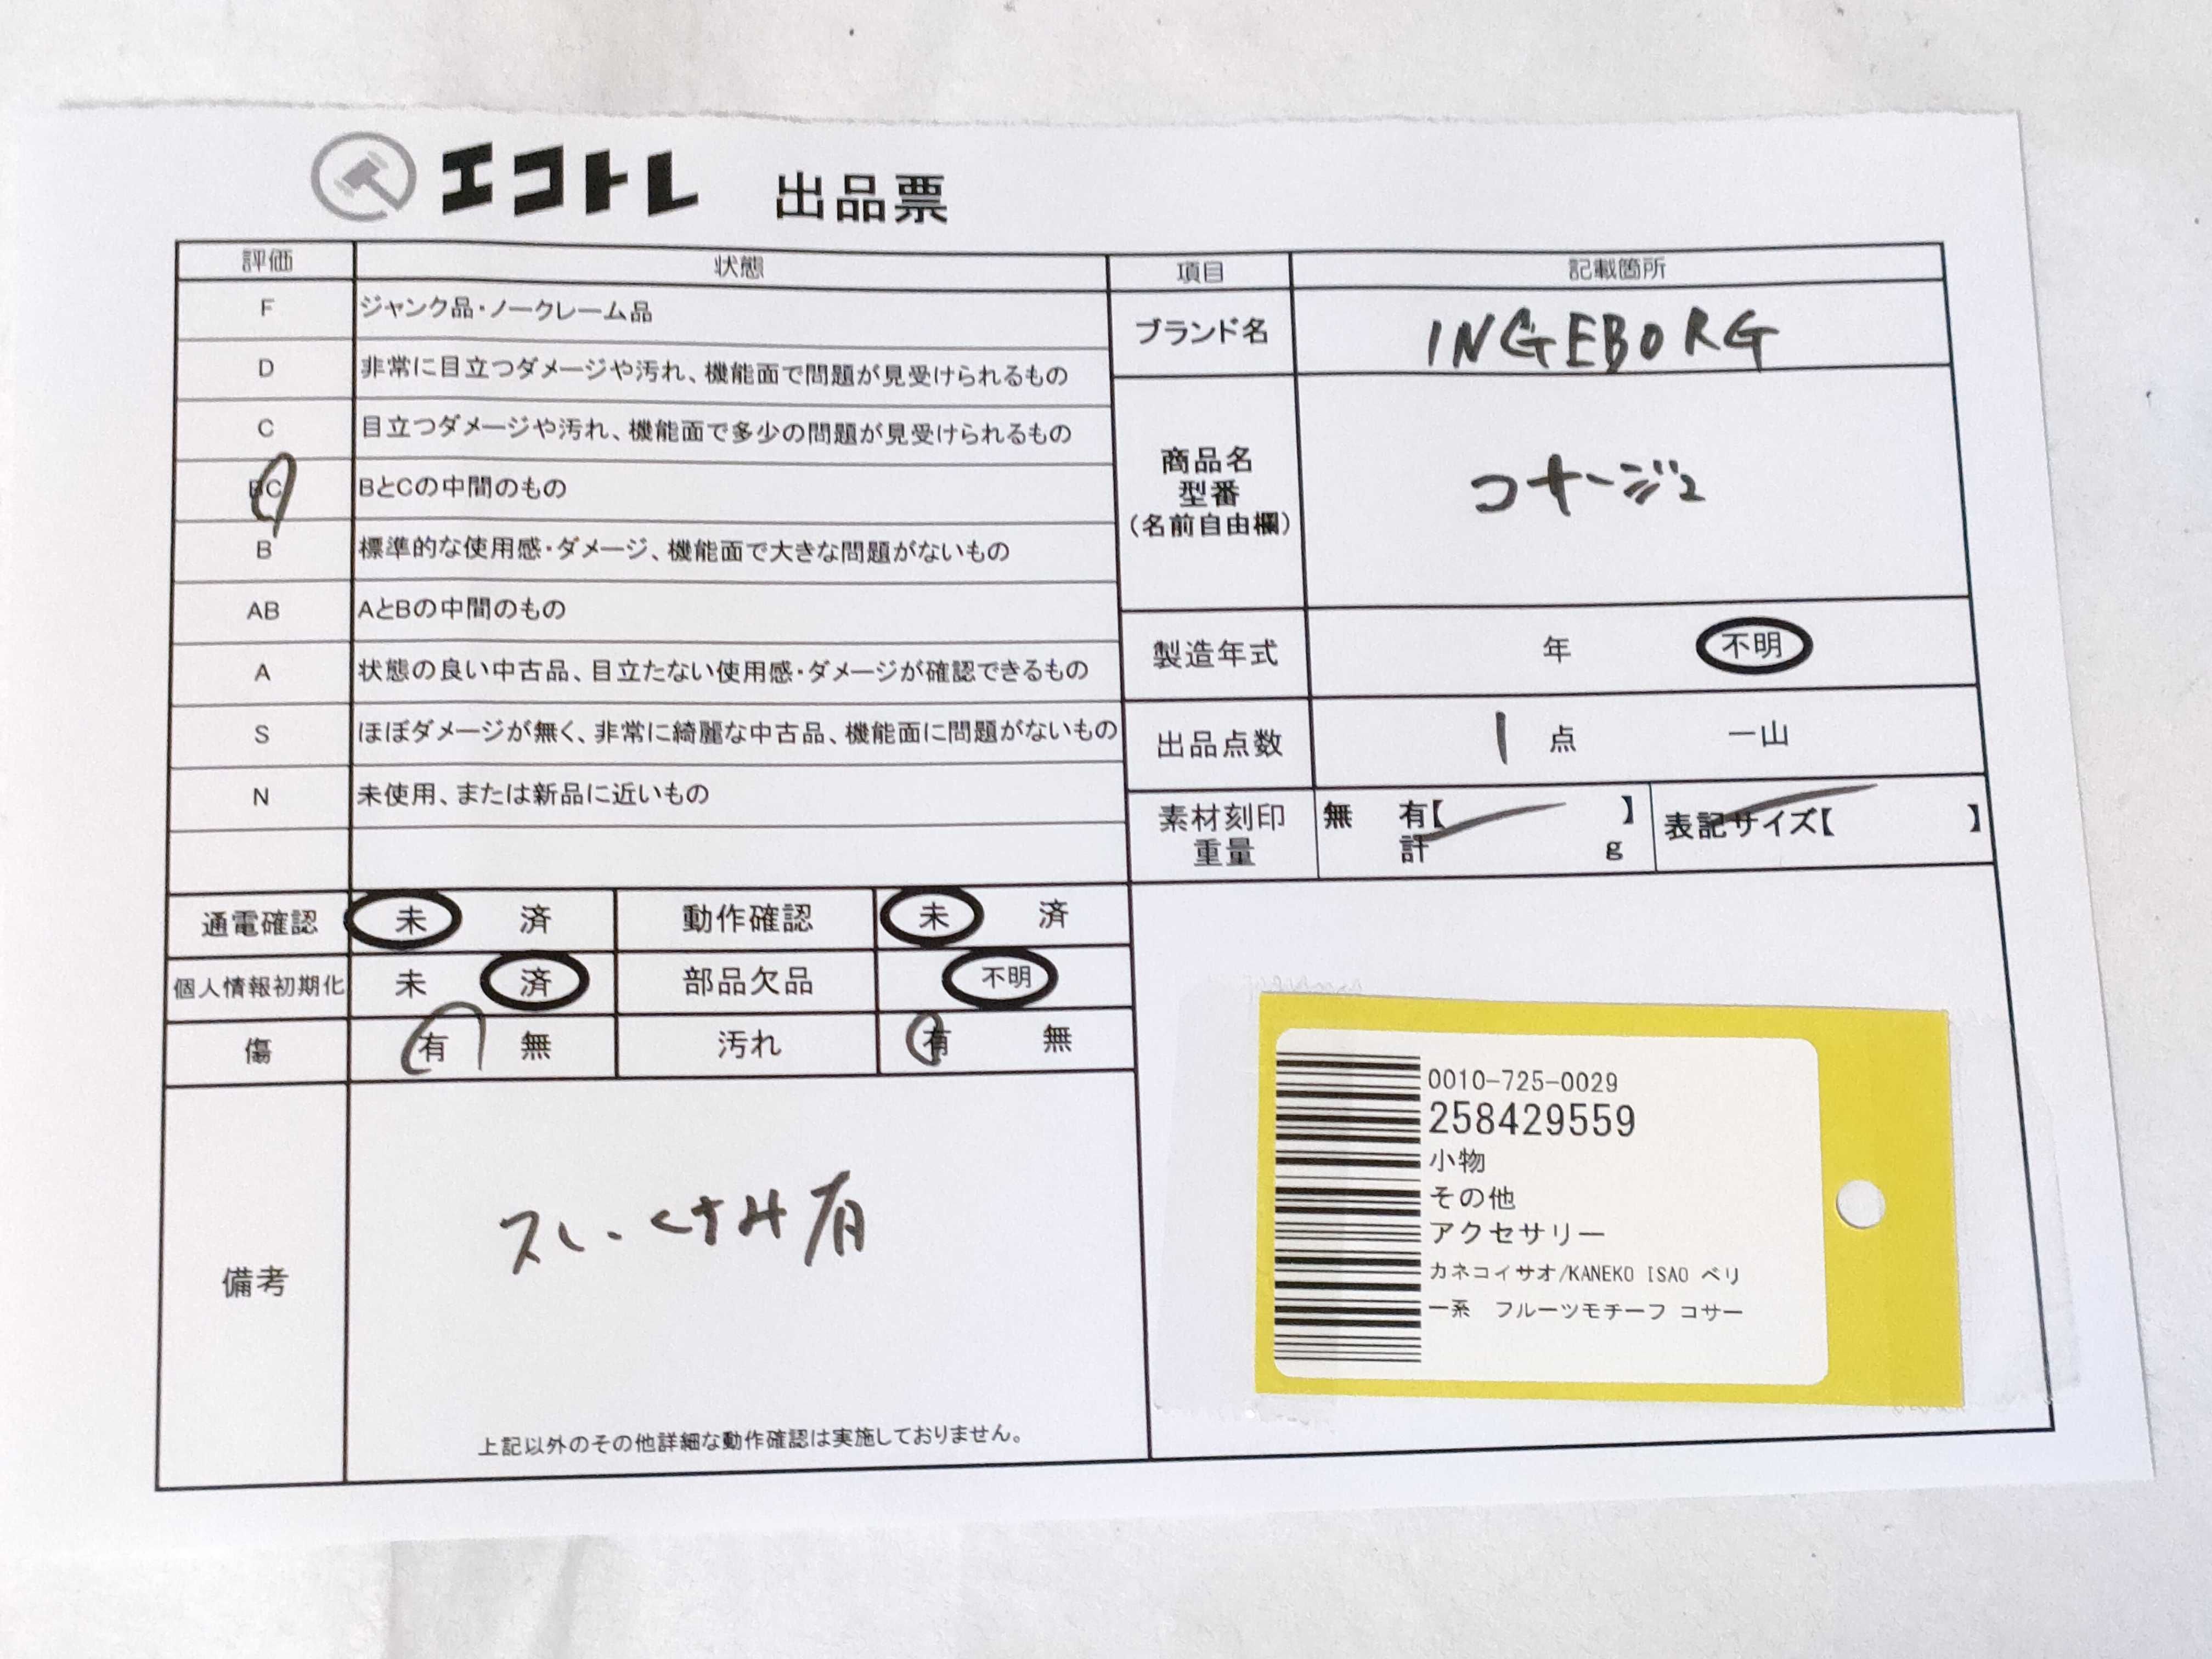 エコトレ 出品票
評価 状態 項目 記載箇所
F ジャンク品・ノークレーム品
D 非常に目立つダメージや汚れ、機能面で問題が見受けられるもの
C 目立つダメージや汚れ、機能面で多少の問題が見受けられるもの
BC BとCの中間のもの
B 標準的な使用感・ダメージ、機能面で大きな問題がないもの
AB AとBの中間のもの
A 状態の良い中古品、目立たない使用感・ダメージが確認できるもの
S ほぼダメージが無く、非常に綺麗な中古品、機能面に問題がないもの
N 未使用、または新品に近いもの
ブランド名 INGEBORG
商品名
型番
(名前自由欄)
コサージュ
製造年式 年 不明
出品点数 1 点 一山
素材刻印 無 有【 】 表記サイズ【 】
重量 計 g
通電確認 未 済 動作確認 未 済
個人情報初期化 未 済 部品欠品 不明
傷 有 無 汚れ 有 無
備考
スレ・くすみ有
上記以外のその他詳細な動作確認は実施しておりません。
0010-725-0029
258429559
小物
その他
アクセサリー
カネコイサオ/KANEKO ISAO ベリ
ー系 フルーツモチーフ コサー